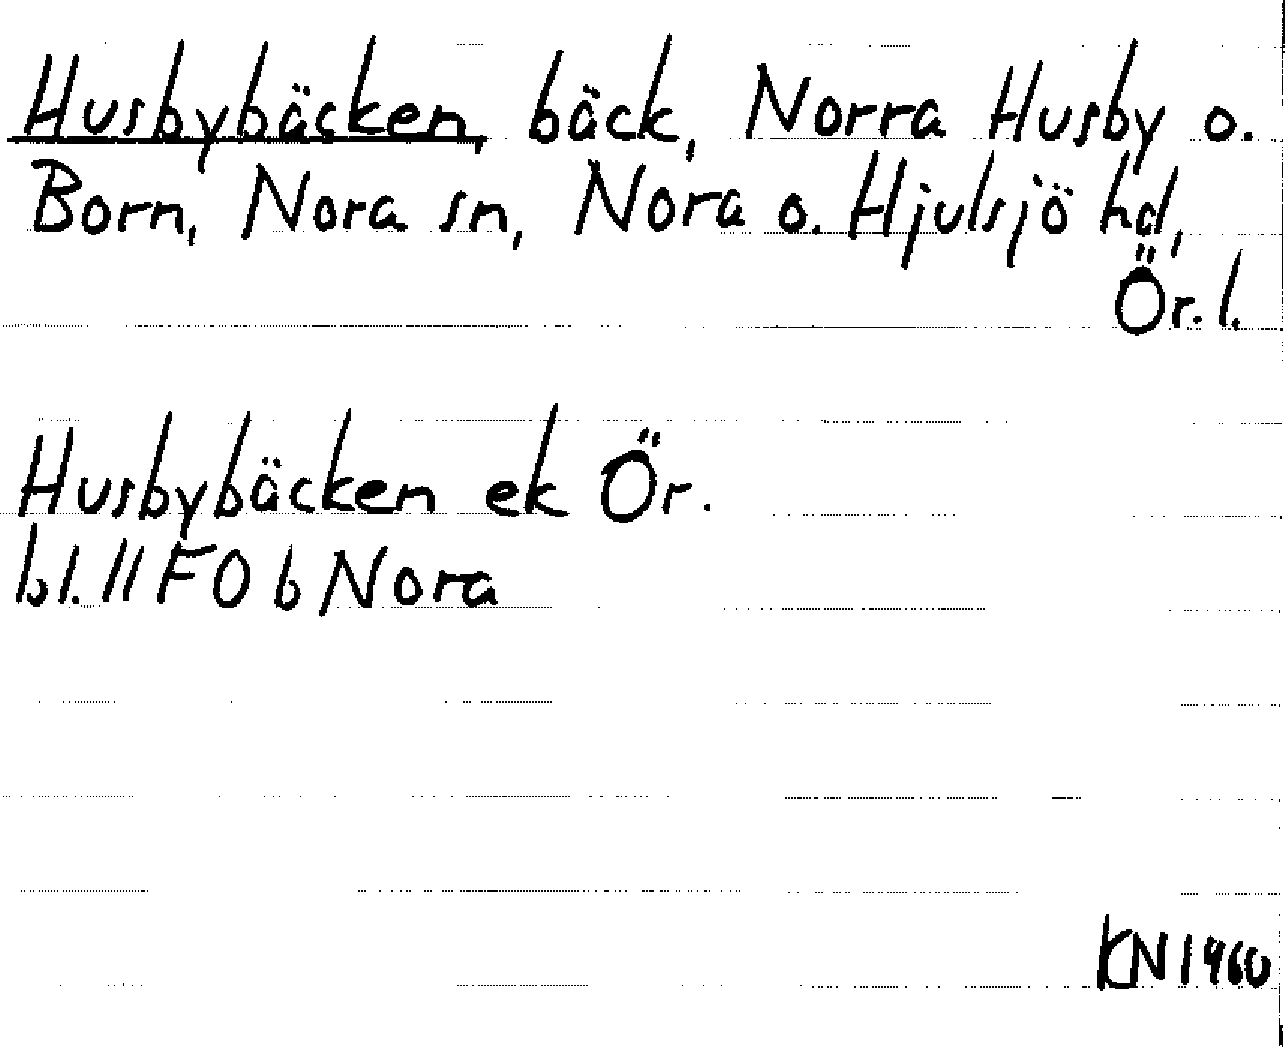 Husbybäcken, bäck, Norra Husby o.
Born, Nora sn, Nora o. Hjulsjö hd,
Ör. l.
Husbybäcken ek Ör.
bl. 11 F0 b Nora
KN 1960